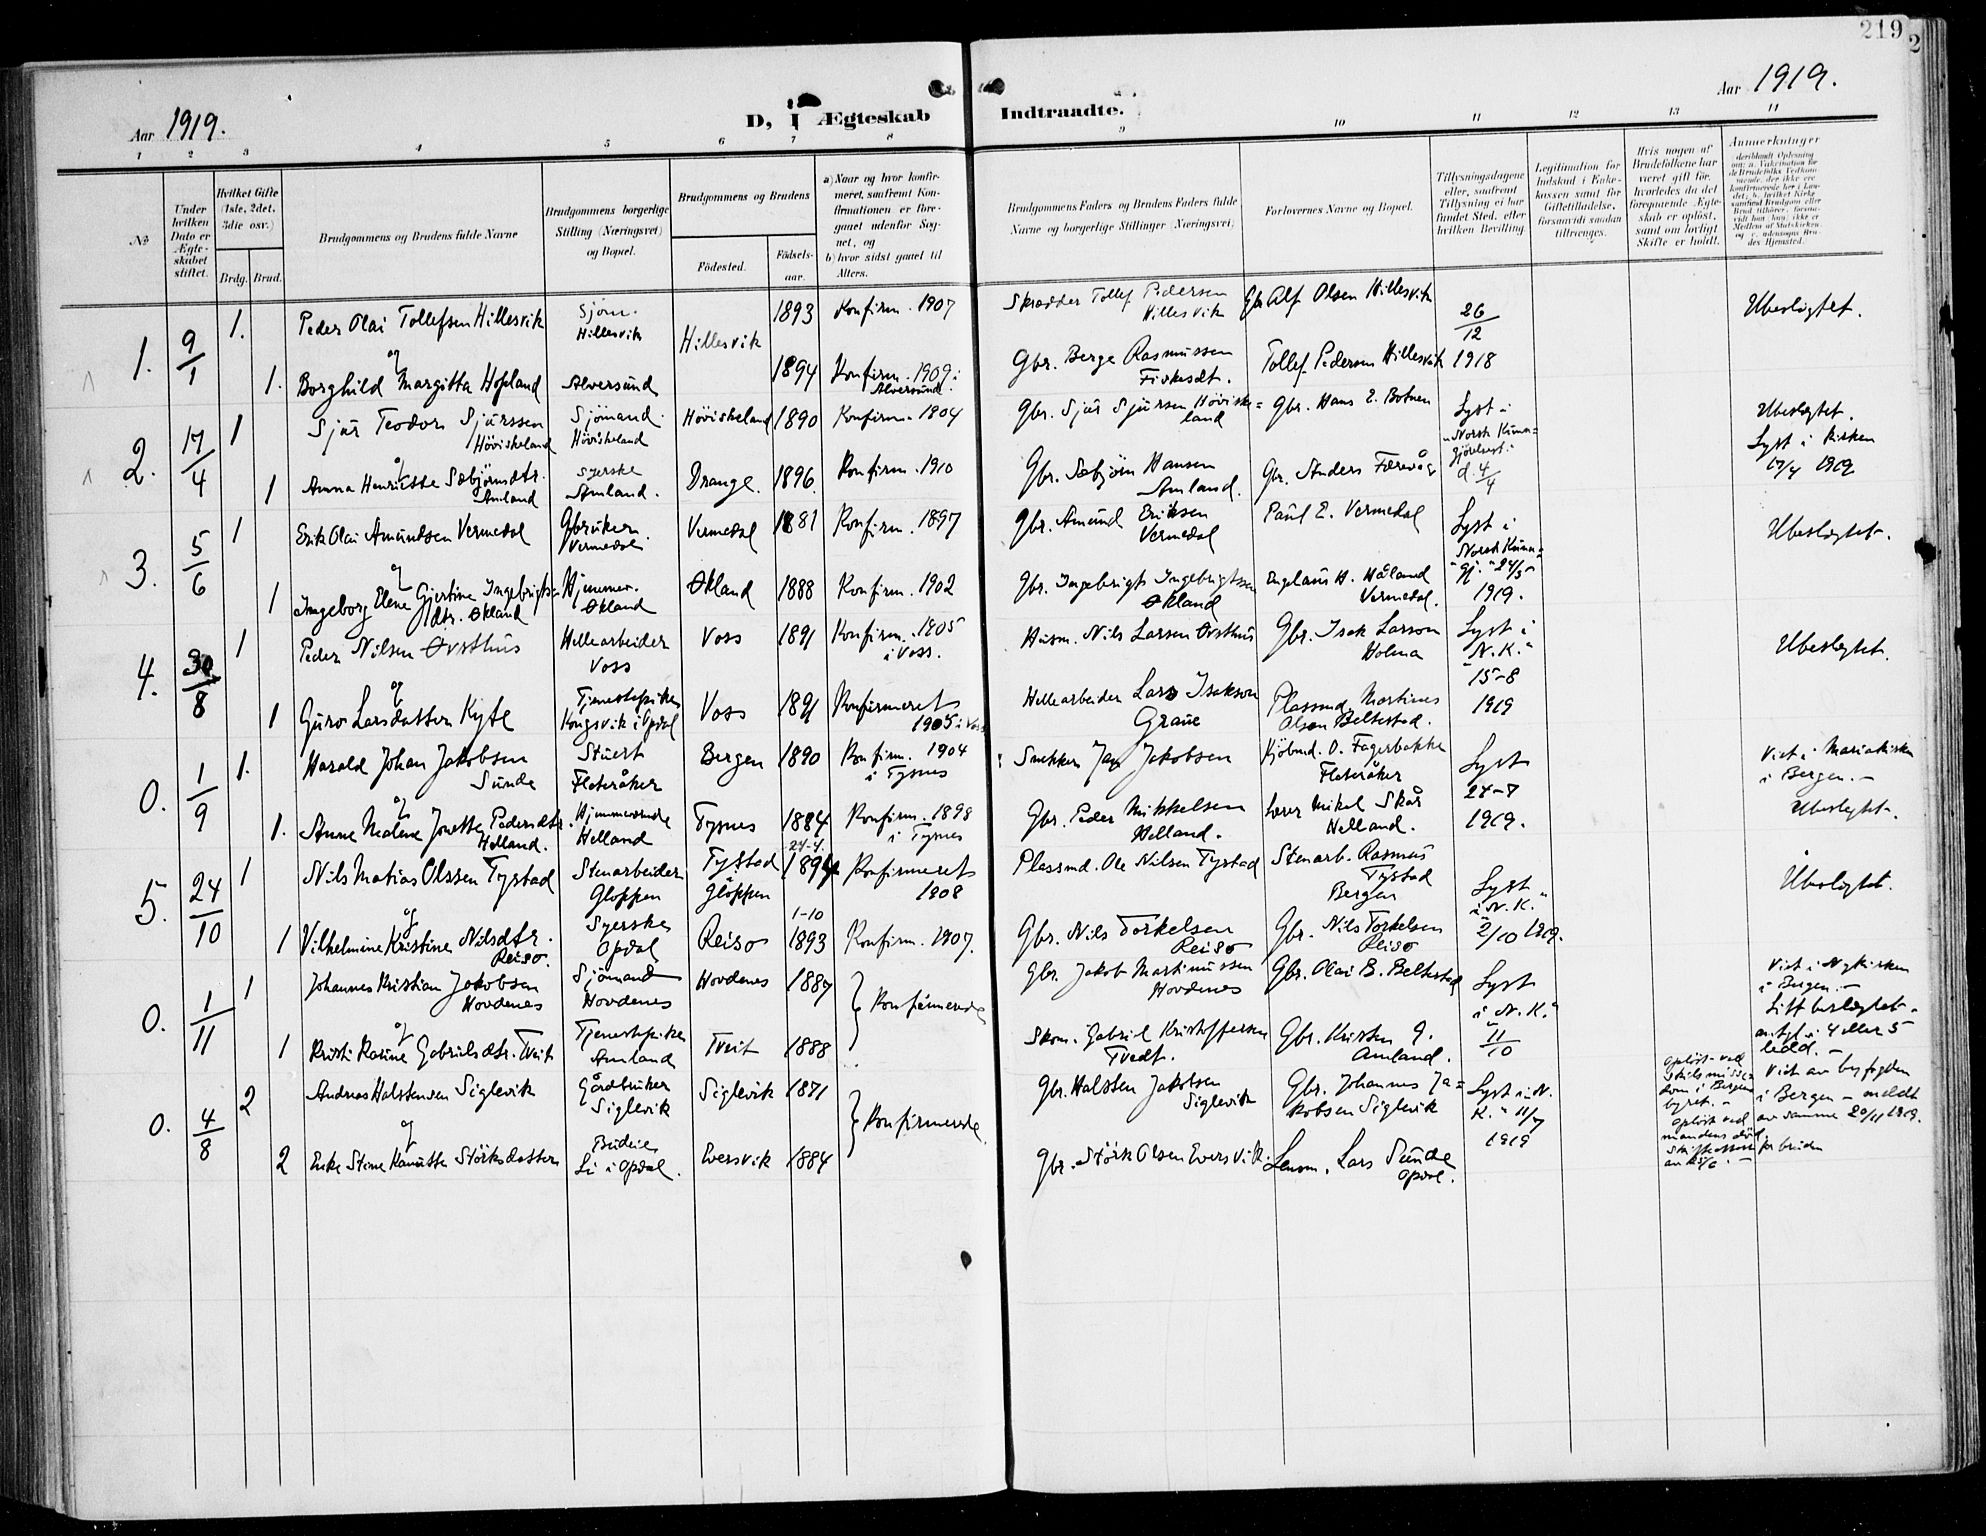 219
2
Aar 1919.
D, I Ægteskab Indtraadte.
Aar 1919.
1 2 3 4 5 6 7 8 9 10 11 12 13 14
No
Under hvilken Dato er Ægteskabet stiftet.
Hvilket Gifte (1ste, 2det, 3die osv.)
Brdg. Brud.
Brudgommens og Brudens fulde Navne
Brudgommens borgerlige Stilling (Næringsvei) og Bopæl.
Brudgommens og Brudens
Födested.
Födselsaar.
a) Naar og hvor konfirmeret, saafremt Konfirmationen er foregaaet udenfor Sognet, og
b) hvor sidst gaaet til Alters.
Brudgommens Faders og Brudens Faders fulde Navne og borgerlige Stillinger (Næringsvei)
Forlovernes Navne og Bopæl.
Tillysningsdagene eller, saafremt Tillysning ei har fundet Sted, efter hvilken Bevilling.
Legitimation for Indskud i Enkekassen samt for Giftetilladelse, forsaavidt saadan tiltrænges.
Hvis nogen af Brudefolkene har været gift før, hvorledes da det foregaaende Ægteskab er opløst, samt om lovligt Skifte er holdt.
Anmerkninger
1. 9/1 1. Peder Olai Tollefsen Hillesvik Sjöm. Hillesvik Hillesvik 1893 Konfirm. 1907 Skrædder Tollef Pedersen Hillesvik Gbr Alf Olsen Hillesvik 26/12 1918 Ubeslegtet.
og
1. Borghild Margitta Hopland Alversund 1894 Konfirm. 1909 i Alversund. Gbr. Berge Rasmussen Tollef Pedersen Hillesvik
2. 17/4 1 Sjur Teodor Sjurssen Höviskeland Sjömand. Höviskeland Höviskeland 1890 Konfirm. 1904 Gbr. Sjur Sjursen Höviskeland Gbr. Hans E. Botnen Lyst i "Norsk Kunngjörelsest." d. 4/4 Ubeslegtet. Lyst i kirken 17/4 1919
og
1 Anna Henriette Sæbjörnsdtr. Amland Syerske Amland. Drange. 1896. Konfirm. 1910 Gbr. Sæbjörn Hansen Amland. Gbr. Anders Færevåg
3. 5/6 1 Erik Olai Amundsen Vermedal Gbruker. Vermedal. Vermedal 1881 Konfirm. 1897 Gbr. Amund Eriksen Vermedal Paul E. Vermedal Lyst i "Norsk Kunngj." 24/5 1919. Ubeslegtet.
og
1 Ingeborg Elene Gjertine Ingebrigtsdtr. Økland Hjemmev. Økland Økland 1888 Konfirm. 1902 Gbr. Ingebrigt Ingebrigtsen Økland Engelaus H. Håland Vermedal.
4. 30/8 1 Peder Nilsen Øvsthus Hellearbeider Voss Voss 1891 Konfirm. 1905 i Voss. Husm. Nils Larsen Øvsthus Gbr. Isak Larson Holma Lyst i "N. K." 15-8 1919 Ubeslegtet.
og
1 Guro Larsdatter Kyte Tjenestepike Kongsvik i Opdal Voss 1891 Konfirmeret 1905 i Voss Hellearbeider Lars Isakson Graue Plassmd. Martinus Olsen Beltestad.
0. 1/9 1. Harald Johan Jakobsen Sunde Stuert Fleteråker Bergen 1890 Konfirm. 1904 i Tysnes Snekker Jakobsen Kjöbmd. O. Fagerbakke Fleteråker Lyst 24-7 1919. Viet i Mariakirken i Bergen. - Ubeslegtet.
og
1. Anne Malene Jonette Pedersdtr. Helland. Hjemmeværende Helland Tysnes 1884 Konfirm. 1898 i Tysnes Gbr. Peder Mikkelsen Helland. Lærer Mikal Skår Helland.
5. 24/10 1 Nils Matias Olssen Tystad Stenarbeider Gloppen Tystad Gloppen 24-4. 1894 Konfirmeret 1908 Plassmd. Ole Nilsen Tystad Stenarb. Rasmus Tystad Bergen Lyst i "N. K." 2/10 1919. Ubeslegtet.
og
1 Vilhelmine Kristine Nilsdtr. Reisø. Syerske Opdal Reisø 1-10 1893 Konfirm. 1907. Gbr. Nils Torkelsen Reisø Gbr. Nils Torkelsen Reisø
0. 1/11 1 Johannes Kristian Jakobsen Hovdenes Sjömand Hovdenes Hovdenes 1887 Konfirmerede Gbr. Jakob Martinussen Hovdenes Gbr. Olai B. Beltestad Lyst i "N. K." 11/10 Viet i Nykirken i Bergen. - Litt beslegtet - antgl. i 4 eller 5 ledd. -
og
1 Kristi Rasine Gabrielsdtr. Tveit Tjenestepike Amland Tveit 1888 Skom. Gabriel Kristoffersen Tvedt. Gbr. Kristen G. Amland.
0. 4/8 2 Andreas Halstensen Siglevik Gårdbruker Siglevik Siglevik 1871 Konfirmerede Gbr. Halsten Jakobsen Siglevik Gbr. Johannes Jakobsen Siglevik Lyst i "N. K." 11/7 1919 Oplöst ved skilsmisse dom i Bergen byret. - Viet av byfogden i Bergen - meldt av samme 20/11 1919.
og
2 Enke Stine Kanutte Störksdatter Budeie Li i Opdal. Eversvik 1884 Gbr. Störk Olsen Eversvik. Lensm. Lars Sunde Opdal. Oplöst ved mandens död. Skifteattest for bruden